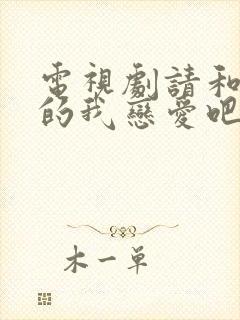 電視劇請和
的我戀愛吧
木一单